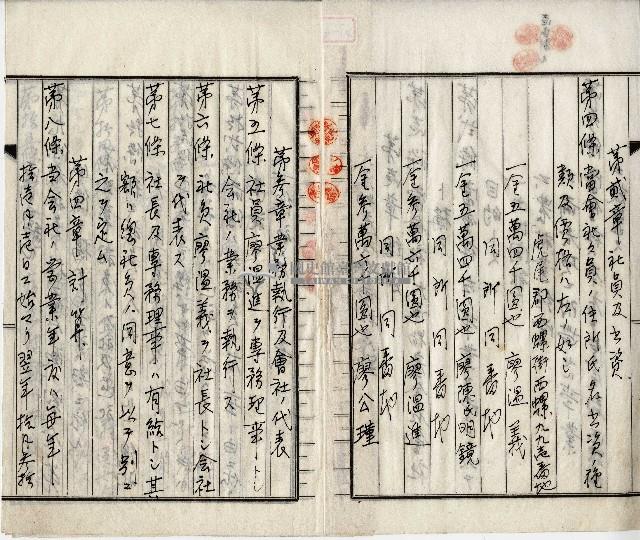 第貳章 社員及出資
第四條 當會社々員ノ住所氏名出資ノ種
類及價格ハ左ノ如シ
虎尾郡西螺街西螺九九壱番地
一金五萬四千圓也 廖温義
同所同番地
一金五萬四千圓也 廖陳氏明鏡
同所同番地
一金參萬六千圓也 廖温進
同所同番地
一金參萬六千圓也 廖公瑾
第參章 業務執行及會社ノ代表
第五條 社員廖温進ヲ専務理事トシ
会社ノ業務ヲ執行ス
第六條 社員廖温義ヲ社長トシ会社
ヲ代表ス
第七條 社長及専務理事ハ有給トシ其
額ハ總社員ノ同意ヲ以テ別ニ
之ヲ定ム
第四章 計算
第八條 当会社ノ営業年度ハ毎年
拾壱月壱日ニ始マリ翌年拾月参拾